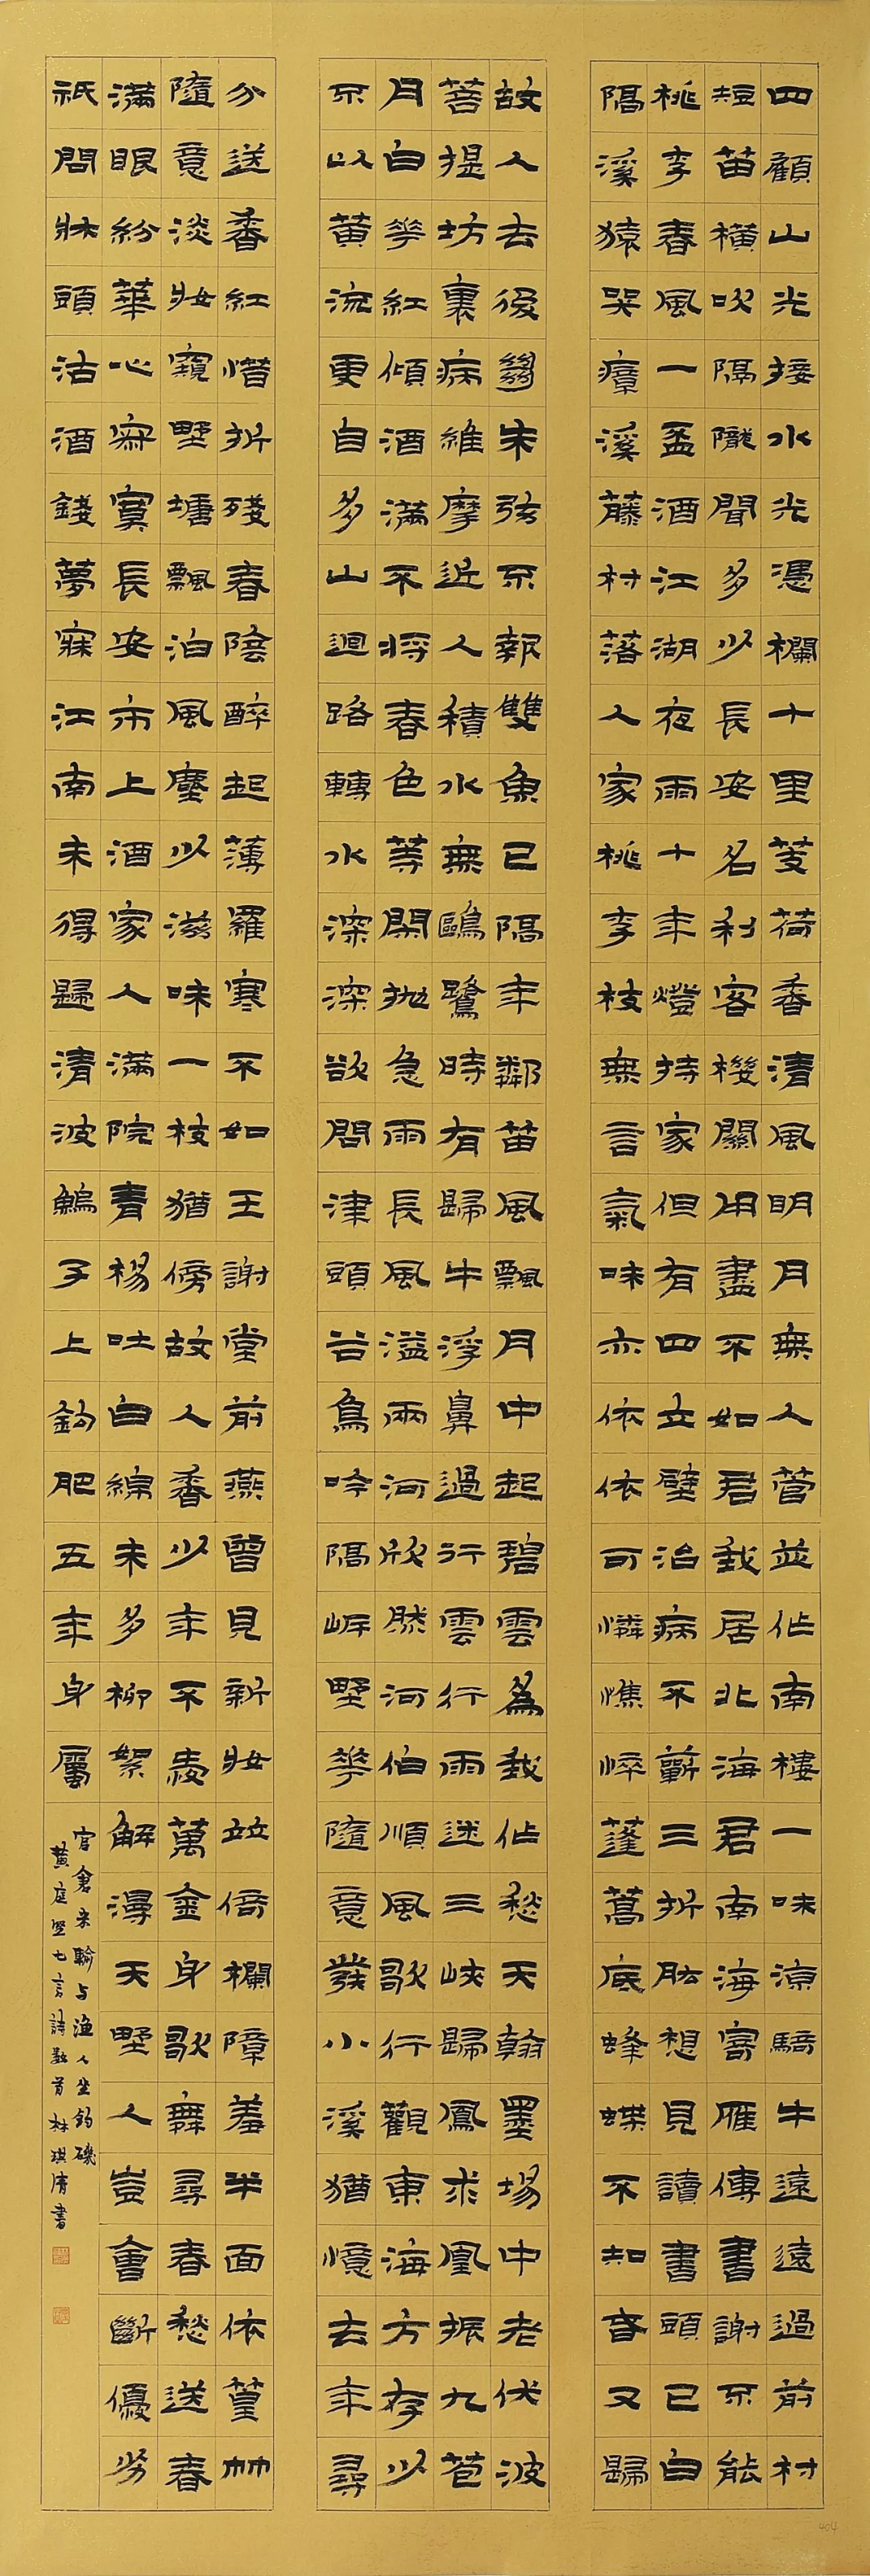 四顧山光接水光憑欄十里芰荷香清風明月無人管並作南樓一味涼騎牛遠遠過前村
短笛橫吹隔隴聞多少長安名利客機關用盡不如君我居北海君南海寄雁傳書謝不能
桃李春風一盃酒江湖夜雨十年燈持家但有四立壁治病不蘄三折肱想見讀書頭已白
隔溪猿哭瘴溪藤村落人家桃李枝無言氣味亦依依可憐憔悴蓬蒿底蜂蝶不知春又歸
故人去後絕朱弦不報雙魚已隔年鄰笛風飄月中起碧雲為我作愁天翰墨場中老伏波
菩提坊裏病維摩近人積水無鷗鷺時有歸牛浮鼻過行雲行雨迷三峽歸鳳求凰振九苞
月白花紅傾酒滿不將春色等閑拋急雨長風溢兩河欣然河伯順風歌行觀東海方存少
不以黃流更自多山迴路轉水深深欲問津頭谷鳥吟隔岸野花隨意發小溪猶憶去年尋
分送香紅惜折殘春陰醉起薄羅寒不如王謝堂前燕曾見新妝竝倚欄障羞半面依篁竹
隨意淡妝窺野塘飄泊風塵少滋味一枝猶傍故人香少年不愛萬金身歌舞尋春愁送春
滿眼紛華心寂寞長安市上酒家人滿院青楊吐白綿未多柳絮解漫天野人豈會斷優劣
祇問牀頭沽酒錢夢寐江南未得歸清波子上鉤肥五年身屬
官倉米輸与漁人坐釣磯
黃庭堅七言詩數首林琪清書
404